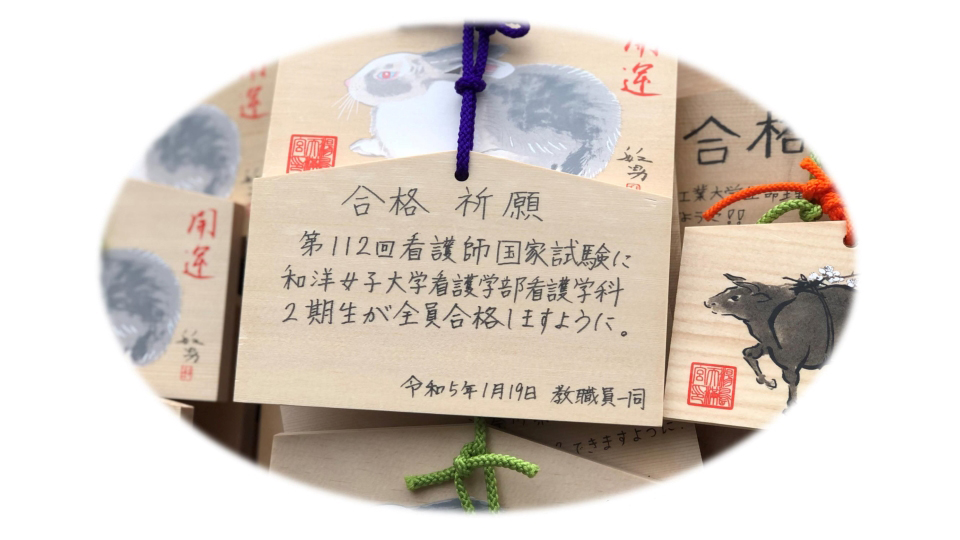 開運
敏男
開運
合格
工業大学
合格 祈願
第112回看護師国家試験に
和洋女子大学看護学部看護学科
2期生が全員合格しますように。
令和5年1月19日 教職員一同
開運
できますように